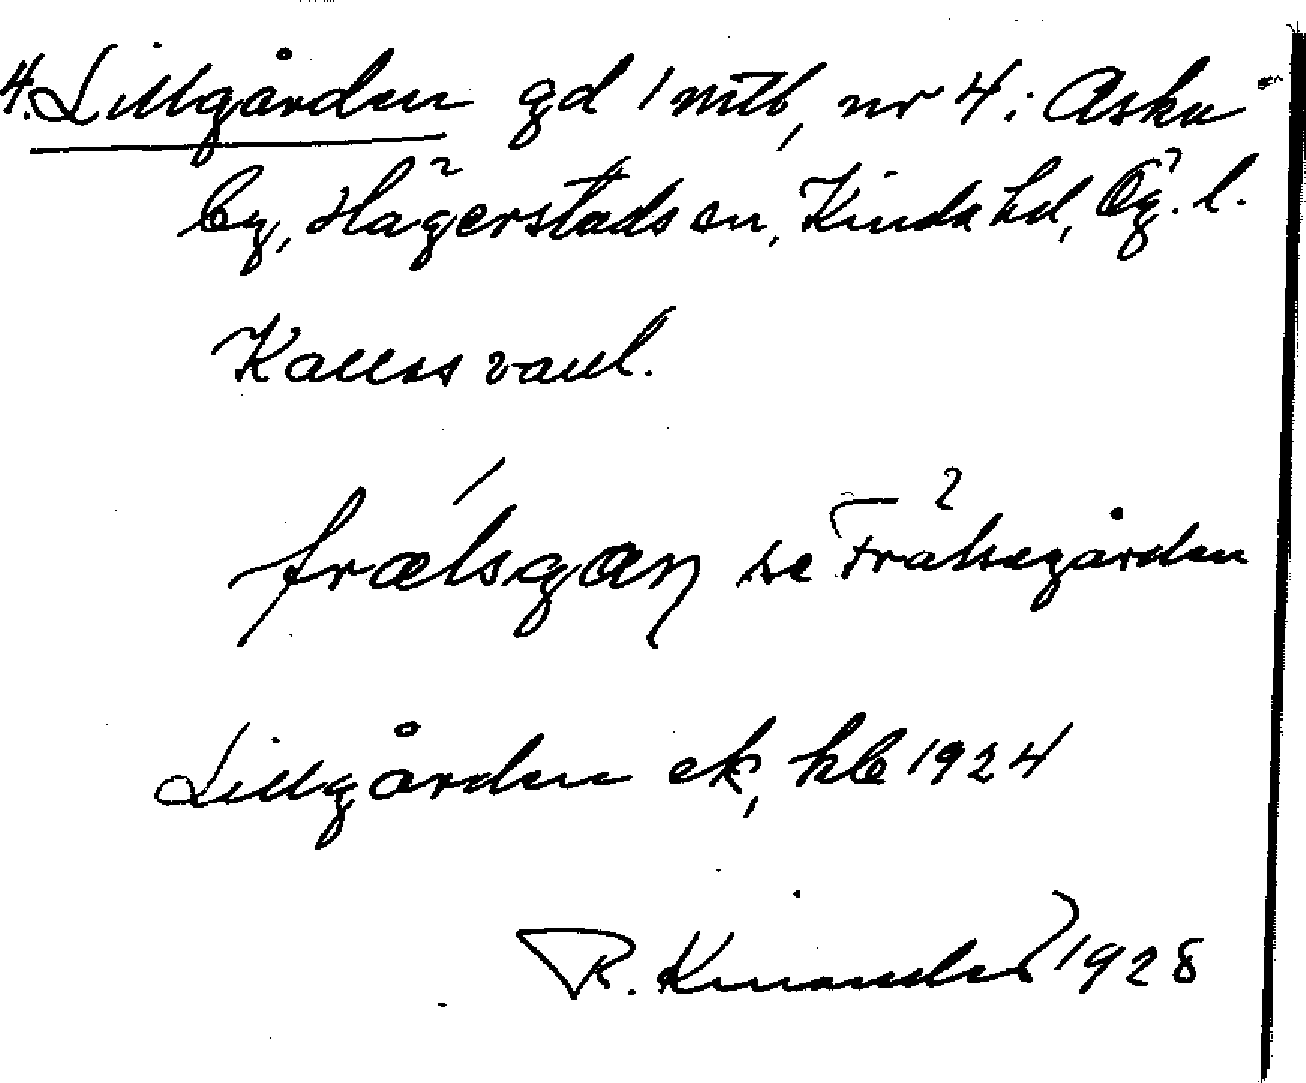 4. Lillgården gd 1 mtl, nr 4 i Aska
by, Hägerstads sn, Kinda hd, Ög. l.
Kallas vanl.
frælsgaṇ se Frälsegården
Lillgården ek, hb 1924
R. Kinander 1928